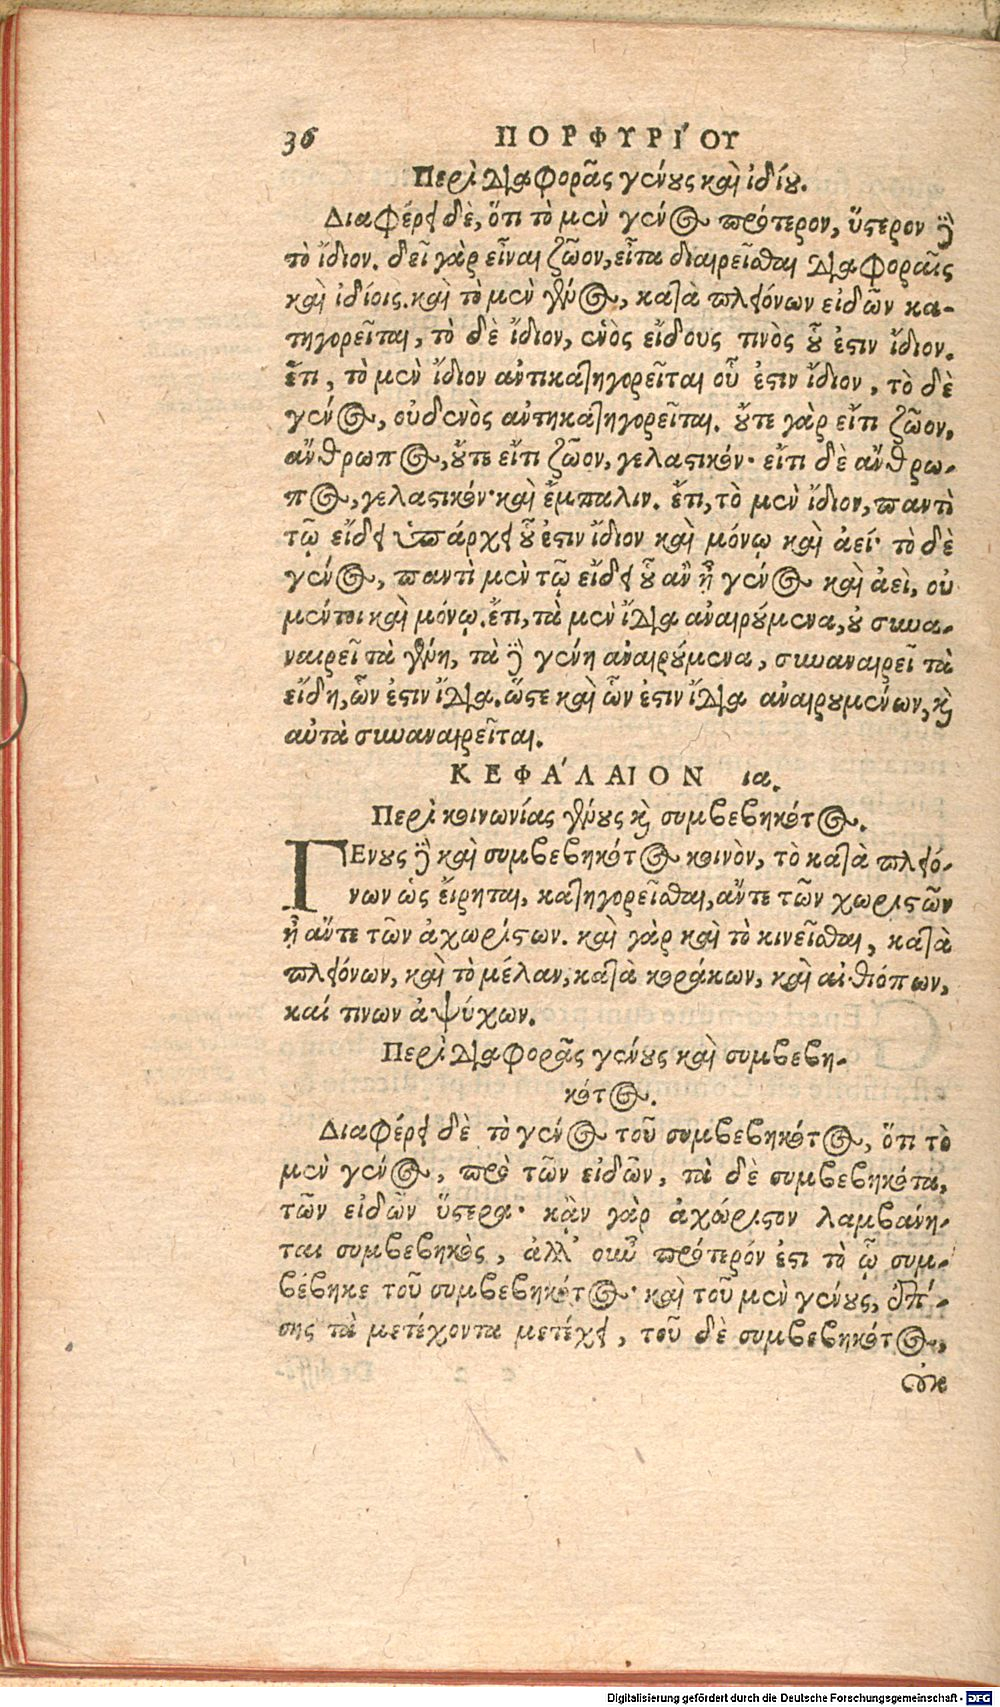 36 ΠΟΡΦΥΡΊΟΥ
Περὶ διαφορᾶς γένους καὶ ἰδίου.
Διαφέρει δὲ, ὅτι τὸ μὲν γένος πρότερον, ὕστερον δὲ
τὸ ἴδιον. δεῖ γὰρ εἶναι ζῶον, εἶτα διαιρεῖσθαι διαφοραῖς
καὶ ἰδίοις. καὶ τὸ μὲν γένος, κατὰ πλειόνων εἰδῶν κα-
τηγορεῖται, τὸ δὲ ἴδιον, ἑνὸς εἴδους τινὸς οὗ ἐστιν ἴδιον.
ἔτι, τὸ μὲν ἴδιον ἀντικατηγορεῖται οὗ ἐστιν ἴδιον, τὸ δὲ
γένος, οὐδενὸς ἀντηκατηγορεῖται. οὔτε γὰρ εἴτι ζῶον,
ἄνθρωπος, οὔτε εἴτι ζῶον, γελαστικόν· εἴτι δὲ ἄνθρω-
πος, γελαστικόν· καὶ ἔμπαλιν. ἔτι, τὸ μὲν ἴδιον, παντὶ
τῷ εἴδει ὑπάρχει οὗ ἐστιν ἴδιον καὶ μόνῳ καὶ ἀεί· τὸ δὲ
γένος, παντὶ μὲν τῷ εἴδει οὗ ἂν ᾖ γένος καὶ ἀεὶ, οὐ
μέντοι καὶ μόνῳ. ἔτι, τὰ μὲν ἴδια ἀναιρούμενα, οὐ συνα-
ναιρεῖ τὰ γένη, τὰ δὲ γένη ἀναιρούμενα, συναναιρεῖ τὰ
εἴδη, ὧν ἐστιν ἴδια. ὥστε καὶ ὧν ἐστιν ἴδια ἀναιρουμένων, καὶ
αὐτὰ συναναιρεῖται.
ΚΕΦΆΛΑΙΟΝ ια.
Περὶ κοινωνίας γένους καὶ συμβεβηκότος.
ΓΕνους δὲ καὶ συμβεβηκότος κοινὸν, τὸ κατὰ πλειό-
νων ὡς εἴρηται, κατηγορεῖσθαι, ἄντε τῶν χωριστῶν
ᾖ ἄντε τῶν ἀχωρίστων. καὶ γὰρ καὶ τὸ κινεῖσθαι, κατὰ
πλειόνων, καὶ τὸ μέλαν, κατὰ κοράκων, καὶ αἰθιόπων,
καί τινων ἀψύχων.
Περὶ διαφορᾶς γένους καὶ συμβεβη-
κότος.
Διαφέρει δὲ τὸ γένος τοῦ συμβεβηκότος, ὅτι τὸ
μὲν γένος, πρὸ τῶν εἰδῶν, τὰ δὲ συμβεβηκότα,
τῶν εἰδῶν ὕστερα· κᾂν γὰρ ἀχώριστον λαμβάνη-
ται συμβεβηκὸς, ἀλλ' οὖν πρότερόν ἐστι τὸ ᾧ συμ-
βέβηκε τοῦ συμβεβηκότος· καὶ τοῦ μὲν γένους, ἐπί-
σης τὰ μετέχοντα μετέχει, τοῦ δὲ συμβεβηκότος,
οὐκ
Digitalisierung gefördert durch die Deutsche Forschungsgemeinschaft - DFG